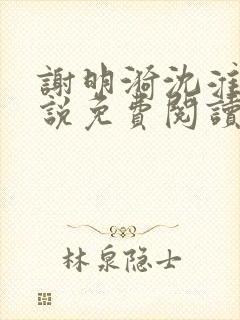 謝明漪沈淮
說免費閱讀
林泉隐士